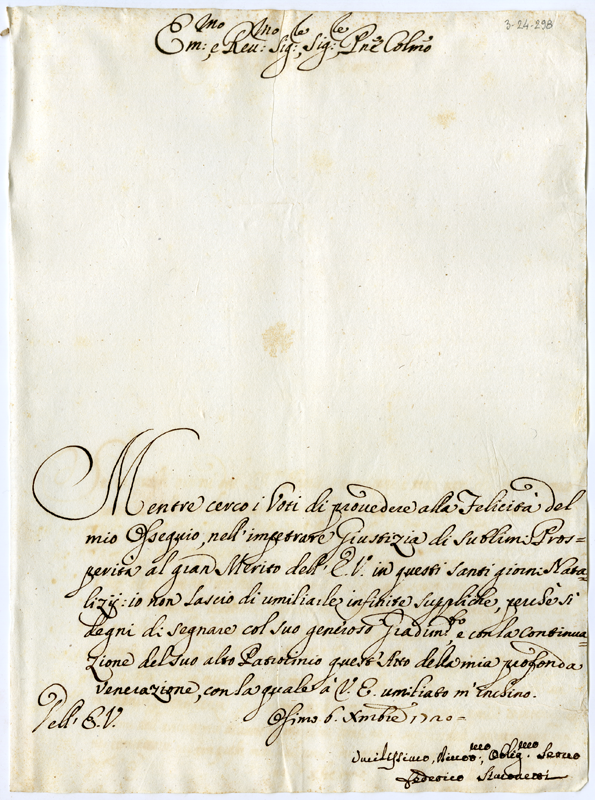 3-24-298
Em:mo e Reu:mo Sig:le Sig:le Pñe Colmo
Mentre cerco i Voti di prouedere alla Felicità del
mio Ossequio, nell'impetrare Giustizia di sublim: Pros=
perità al gran Merito dell' E.V. in questi santi giorni Nata=
lizij: io non lascio di umiliarle infinite suppliche, perche si
degni di segnare col suo generoso Gradim:to, e con la Continua=
zione del Suo alto Patrocinio quest'Atto della mia profonda
Venerazione, con la quale à V.E. umiliato m'inchino.
Dell' E.V. Osimo 6. Xmbre 1720=
Vmilissimo, Diuot:mo, Oblig:mo Seruo
Federico